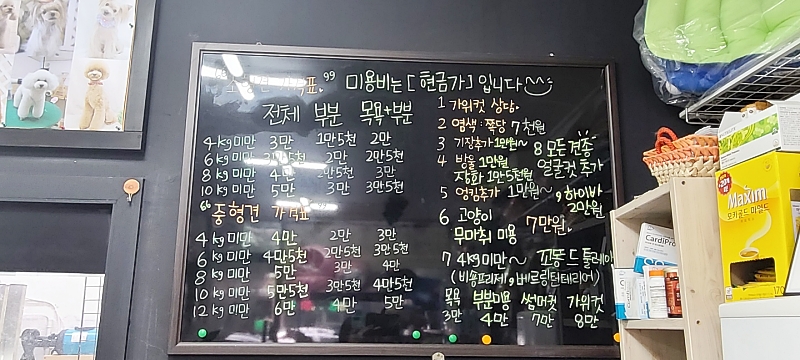 "소형견 가격표."
미용비는 [현금가] 입니다
전체 부분 목욕+부분
4kg미만 3만 1만5천 2만
6kg미만 3만5천 2만 2만5천
8kg미만 4만 2만5천 3만
10kg미만 5만 3만 3만5천
"중형견 가격표"
4kg미만 4만 2만 3만
6kg미만 4만5천 2만5천 3만5천
8kg미만 5만 3만 4만
10kg미만 5만5천 3만5천 4만5천
12kg미만 6만 4만 5만
1 가위컷 상담.
2 염색: 쪽당 7천원
3 기장추가 1만원~
4 방울 1만원
장화 1만5천원
5 엉킴추가 1만원~
6 고양이
무마취 미용 7만원.
7 4kg미만~ 꼬똥 드 툴레아
(비숑프리제, 베들링턴테리어)
목욕 부분미용 썸머컷 가위컷
3만 4만 7만 8만
8 모든견종
얼굴컷 추가
9 하이바
2만원
CardiPro
Maxim
모카골드 마일드
170